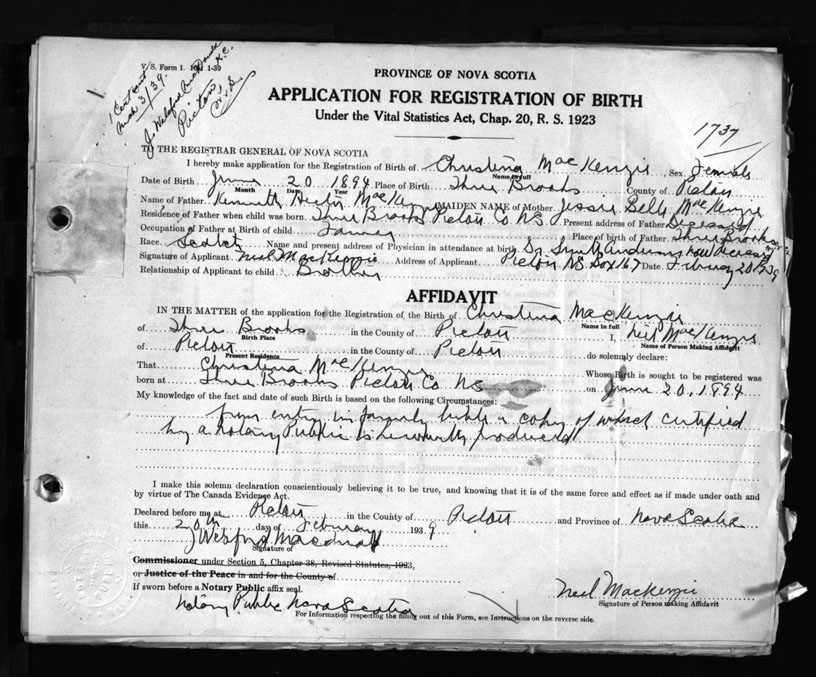 V. S. Form 1. 10M 1-39
1 Cert out
Mar 3/39.
J. Welsford MacDonald K.C.
Pictou,
N.S.
PROVINCE OF NOVA SCOTIA
APPLICATION FOR REGISTRATION OF BIRTH
Under the Vital Statistics Act, Chap. 20, R. S. 1923
1737
TO THE REGISTRAR GENERAL OF NOVA SCOTIA
I hereby make application for the Registration of Birth of Christina MacKenzie Sex. Female
Name in full
Date of Birth June 20 1894 Place of Birth Three Brooks County of Pictou
Month Date Year
Name of Father Kenneth MacKenzie MAIDEN NAME of Mother Jessie Belle MacKenzie
Residence of Father when child was born. Three Brooks Pictou Co NS Present address of Father Deceased
Occupation of Father at Birth of child Farmer Place of birth of Father Three Brooks
Race. Scotch Name and present address of Physician in attendance at birth Dr. Smith Anderson now deceased
Signature of Applicant Neil MacKenzie Address of Applicant Pictou NS Box 167 Date February 20/1939
Relationship of Applicant to child Brother
AFFIDAVIT
IN THE MATTER of the application for the Registration of the Birth of Christina MacKenzie
Name in full
of Three Brooks in the County of Pictou I, Neil MacKenzie
Birth Place Name of Person Making Affidavit
of Pictou in the County of Pictou do solemnly declare:
Present Residence
That Christina MacKenzie Whose Birth is sought to be registered was
born at Three Brooks Pictou Co NS on June 20, 1894
My knowledge of the fact and date of such Birth is based on the following Circumstances:
from entry in family bible a copy of which certified
by a Notary Public is herewith produced
I make this solemn declaration conscientiously believing it to be true, and knowing that it is of the same force and effect as if made under oath and
by virtue of The Canada Evidence Act.
Declared before me at Pictou in the County of Pictou and Province of Nova Scotia
this 20th day of February 1939
J Welsford Macdonald
Signature of
Commissioner under Section 5, Chapter 38, Revised Statutes, 1923,
or Justice of the Peace in and for the County of
If sworn before a Notary Public affix seal.
Neil MacKenzie
Signature of Person making Affidavit
Notary Public Nova Scotia
For Information respecting the filling out of this Form, see Instructions on the reverse side.